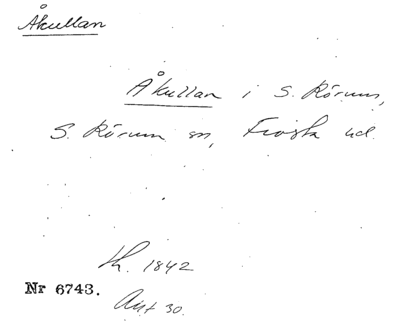 Åkullan
Åkullan i S. Rörum,
S. Rörum sn, Frosta hd.
Kh. 1842
Nr 6743.
Akt 30.